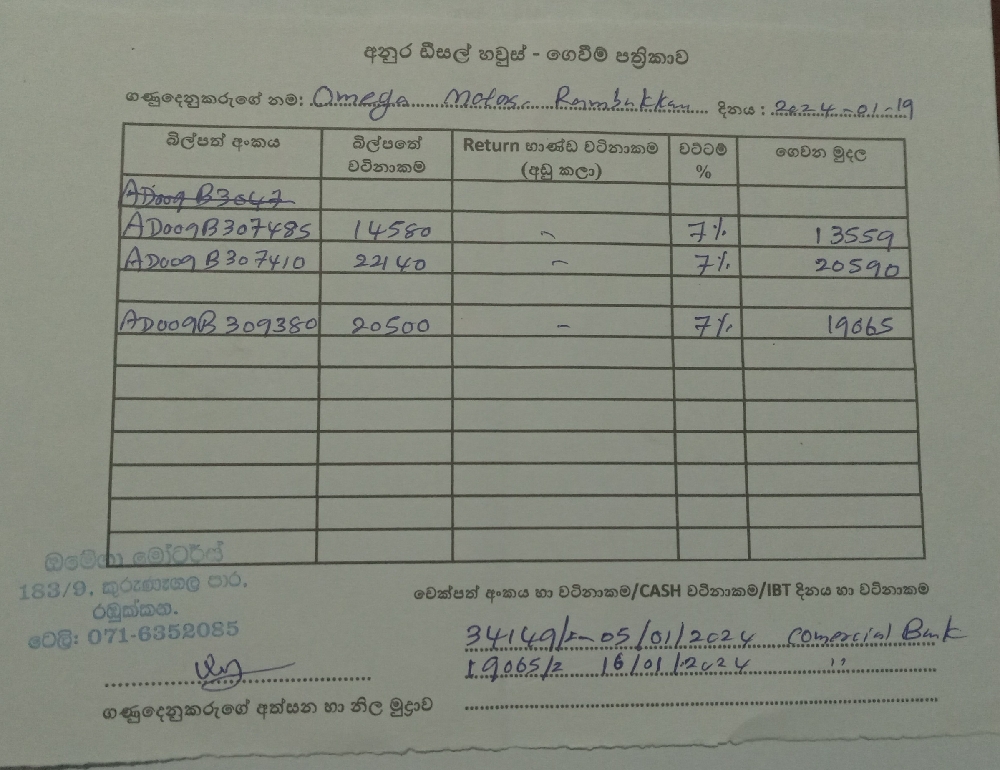 අනුර ඩීසල් හවුස් - ගෙවීම් පත්‍රිකාව
ගණුදෙනුකරුගේ නම: Omega Motos. Rambukkan දිනය : 2024-01-19
බිල්පත් අංකය බිල්පතේ වටිනාකම Return භාණ්ඩ වටිනාකම (අඩු කලා) වට්ටම් % ගෙවන මුදල
AD009B3047
AD009B307485 14580 - 7% 13559
AD009B307410 22140 - 7% 20590
AD009B309380 20500 - 7% 19065
ඔමේගා මෝටර්ස්
183/9, කුරුණෑගල පාර,
රඹුක්කන.
ටෙලි: 071-6352085
චෙක්පත් අංකය හා වටිනාකම/CASH වටිනාකම/IBT දිනය හා වටිනාකම
34149/= 05/01/2024 Comercial Bank
19065/= 16/01/2024 "
ගණුදෙනුකරුගේ අත්සන හා නිල මුද්‍රාව